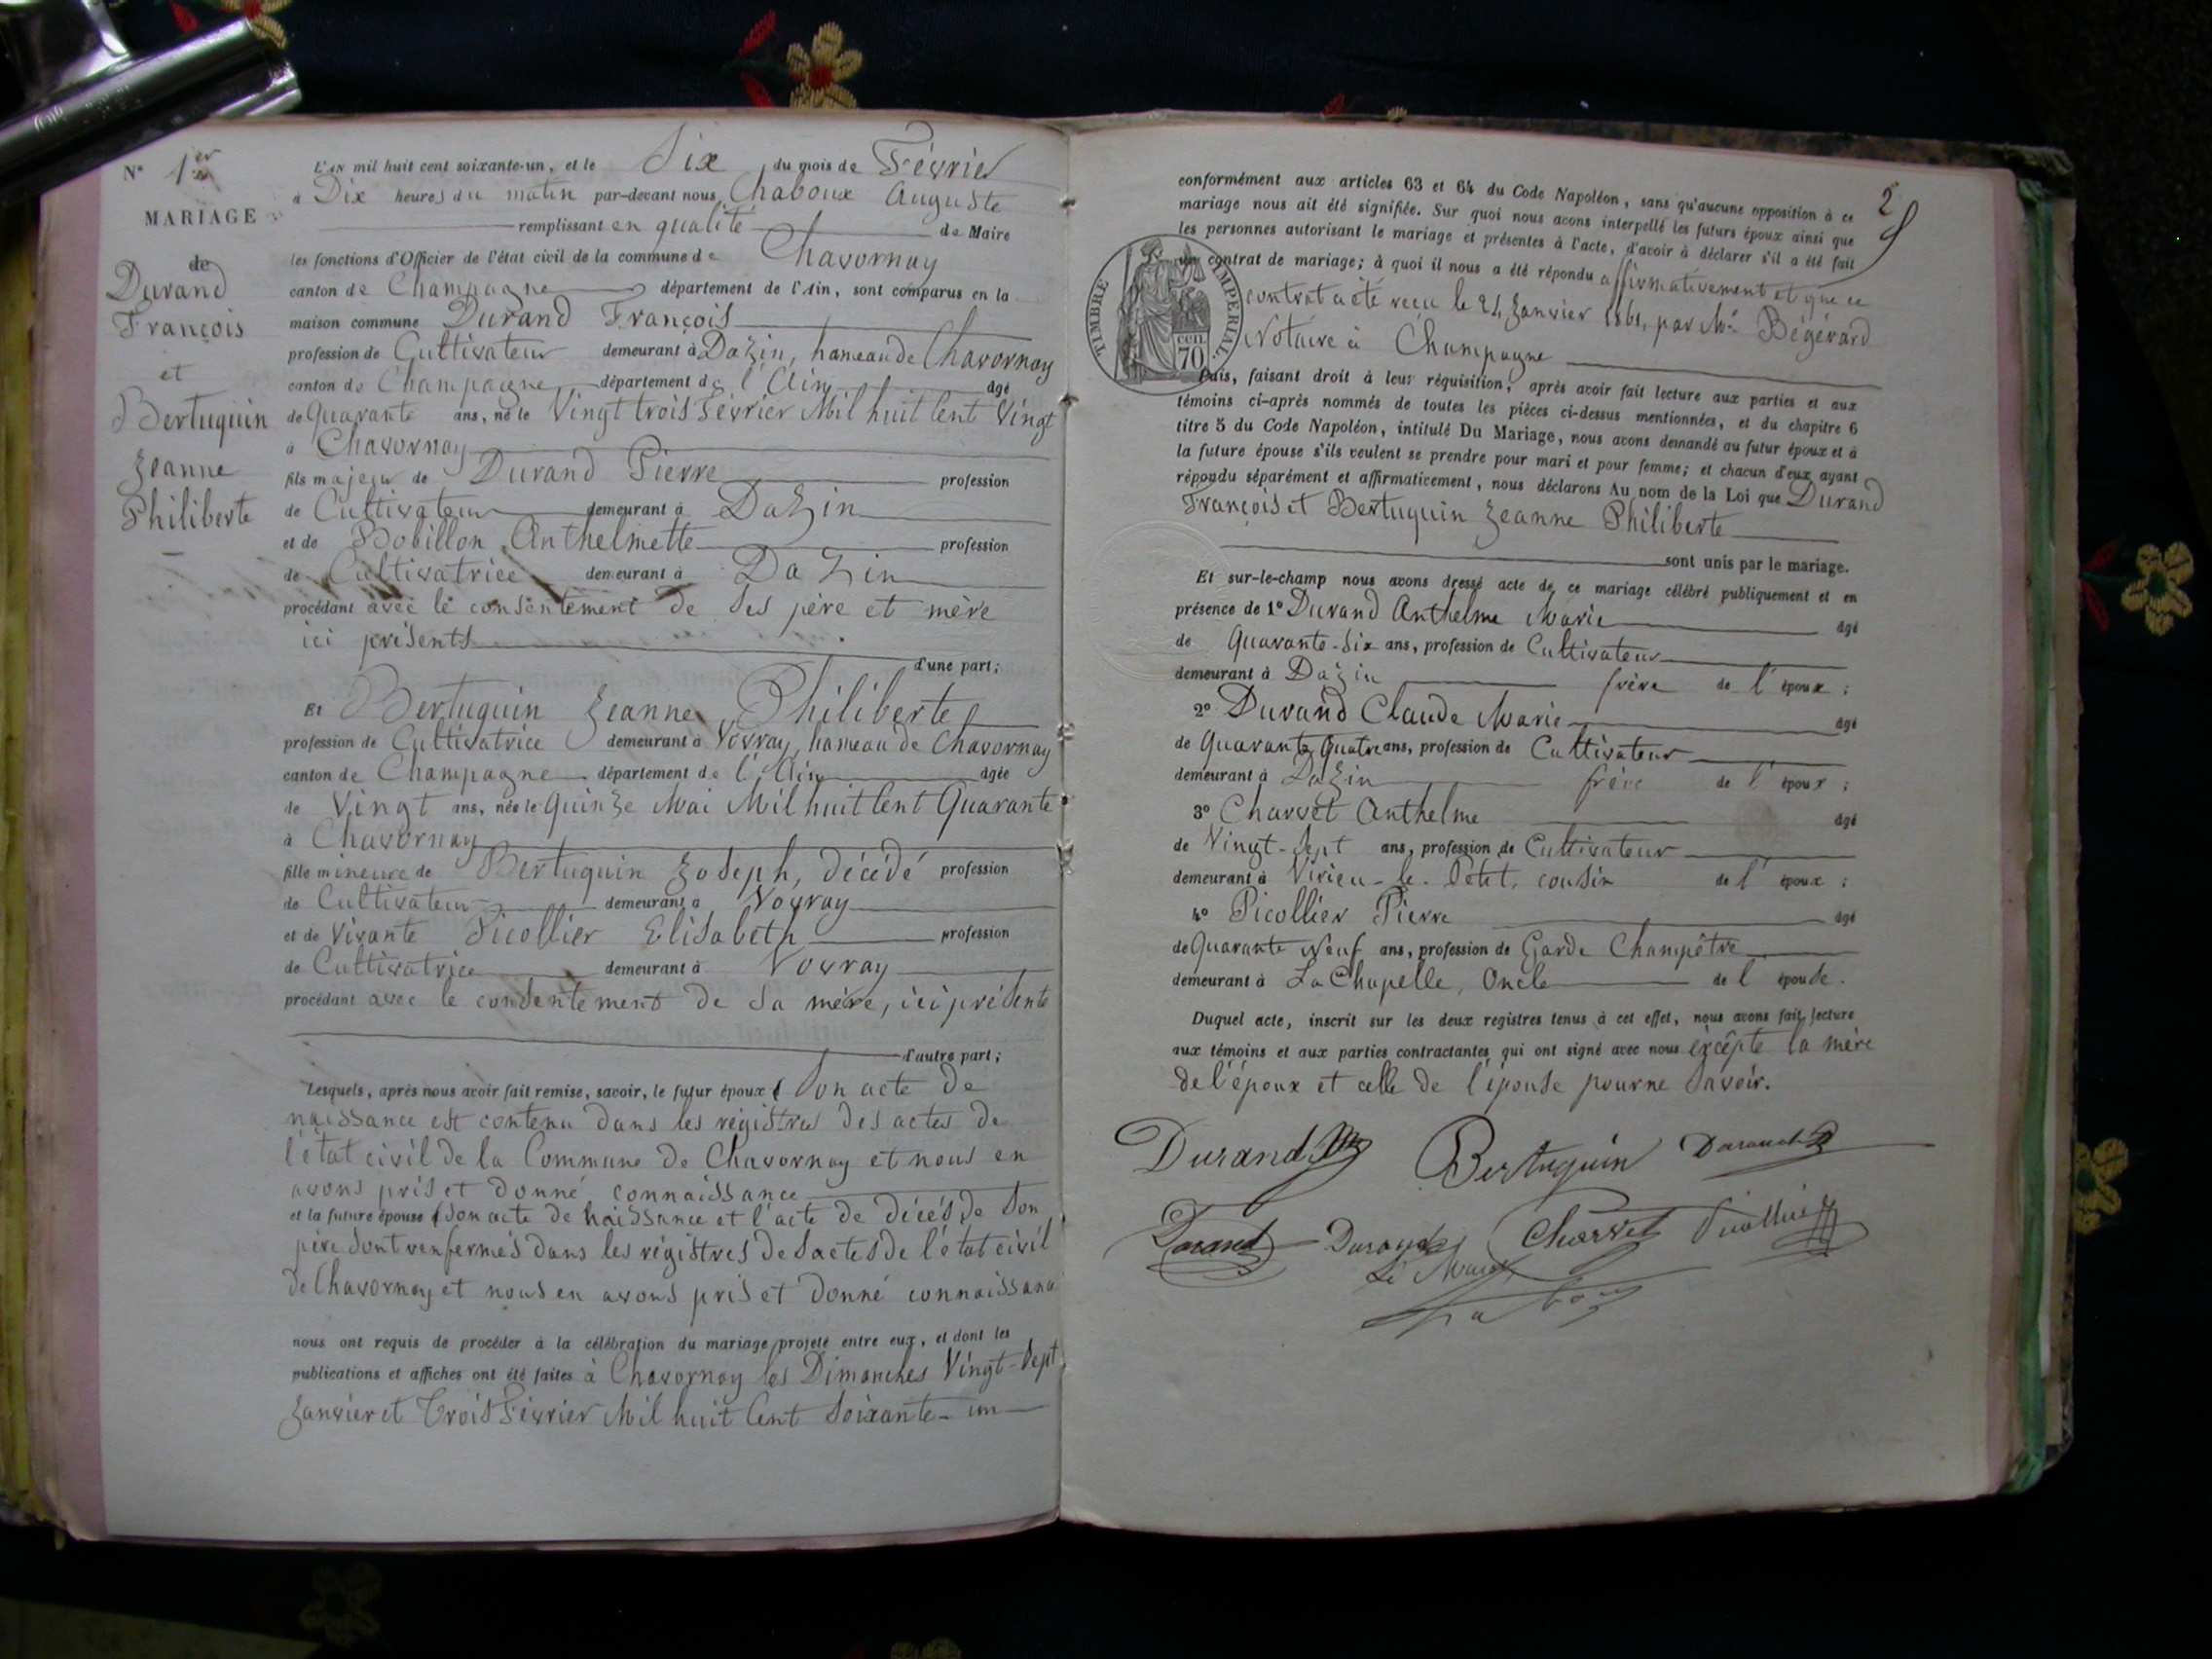 N° 1er
MARIAGE
de
Durand
François
et
Bertuquin
Jeanne
Philiberte
L'AN mil huit cent soixante-un, et le Six du mois de Février
à Dix heures du matin par-devant nous Chaboux Auguste
remplissant en qualité de Maire
les fonctions d'Officier de l'état civil de la commune de Chavornay
canton de Champagne département de l'Ain, sont comparus en la
maison commune Durand François
profession de Cultivateur demeurant à Dazin, hameau de Chavornay
canton de Champagne département de l'Ain âgé
de Quarante ans, né le Vingt trois Février Mil huit Cent Vingt
à Chavornay
fils majeur de Durand Pierre profession
de Cultivateur demeurant à Dazin
et de Bobillon Anthelmette profession
de Cultivatrice demeurant à Dazin
procédant avec le consentement de ses père et mère
ici présents
d'une part;
Et Bertuquin Jeanne Philiberte
profession de Cultivatrice demeurant à Vovray, hameau de Chavornay
canton de Champagne département de l'Ain âgée
de Vingt ans, née le Quinze Mai Mil huit Cent Quarante
à Chavornay
fille mineure de Bertuquin Joseph, décédé profession
de Cultivateur demeurant à Vovray
et de Vivante Picollier Elisabeth profession
de Cultivatrice demeurant à Vovray
procédant avec le consentement de sa mère, ici présente
d'autre part;
Lesquels, après nous avoir fait remise, savoir, le futur époux ( Son acte de
naissance est contenu dans les régistres des actes de
l'état civil de la Commune de Chavornay et nous en
avons pris et donné connaissance
et la future épouse ( Son acte de naissance et l'acte de décès de Son
père sont renfermés dans les régistres des actes de l'état civil
de Chavornay et nous en avons pris et donné connaissance
nous ont requis de procéder à la célébration du mariage projeté entre eux, et dont les
publications et affiches ont été faites à Chavornay les Dimanches Vingt-Sept
Janvier et Trois Février Mil huit Cent Soixante-un
2
conformément aux articles 63 et 64 du Code Napoléon, sans qu'aucune opposition à ce
mariage nous ait été signifiée. Sur quoi nous avons interpellé les futurs époux ainsi que
les personnes autorisant le mariage et présentes à l'acte, d'avoir à déclarer s'il a été fait
un contrat de mariage; à quoi il nous a été répondu affirmativement et que ce
contrat a été reçu le 24 Janvier 1861, par Me Bégérard
Notaire à Champagne
TIMBRE IMPÉRIAL.
cen.
70
Puis, faisant droit à leur réquisition, après avoir fait lecture aux parties et aux
témoins ci-après nommés de toutes les pièces ci-dessus mentionnées, et du chapitre 6
titre 5 du Code Napoléon, intitulé Du Mariage, nous avons demandé au futur époux et à
la future épouse s'ils veulent se prendre pour mari et pour femme; et chacun d'eux ayant
répondu séparément et affirmativement, nous déclarons Au nom de la Loi que Durand
François et Bertuquin Jeanne Philiberte
sont unis par le mariage.
Et sur-le-champ nous avons dressé acte de ce mariage célébré publiquement et en
présence de 1° Durand Anthelme Marie âgé
de Quarante-Six ans, profession de Cultivateur
demeurant à Dazin frère de l'époux;
2° Durand Claude Marie âgé
de Quarante Quatre ans, profession de Cultivateur
demeurant à Dazin frère de l'époux;
3° Charvet Anthelme âgé
de Vingt-Sept ans, profession de Cultivateur
demeurant à Virieu-le-Petit, cousin de l'époux;
4° Picollier Pierre âgé
de Quarante Neuf ans, profession de Garde Champêtre
demeurant à La Chapelle, Oncle de l'épouse.
Duquel acte, inscrit sur les deux registres tenus à cet effet, nous avons fait lecture
aux témoins et aux parties contractantes qui ont signé avec nous excépté la mère
de l'époux et celle de l'épouse pour ne Savoir.
Durand Bertuquin Durand
Durand Durand Charvet Picollier
Le Maire